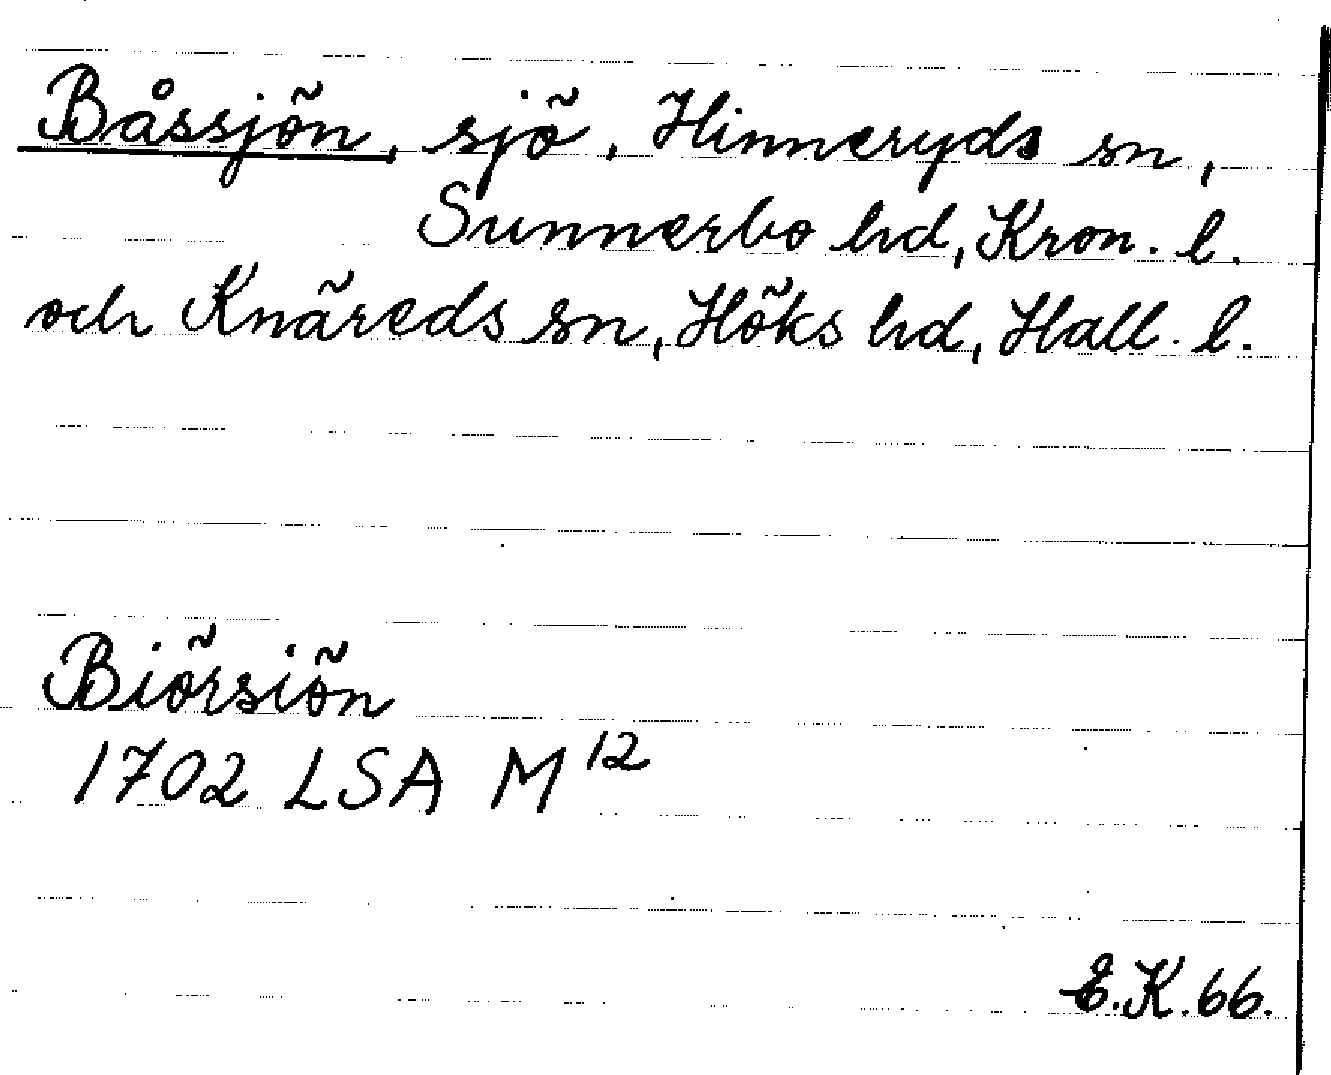 Båssjön, sjö, Hinneryds sn,
Sunnerbo hd, Kron. l.
och Knäreds sn, Höks hd, Hall. l.
Biörsiön
1702 LSA M¹²
E.K.66.